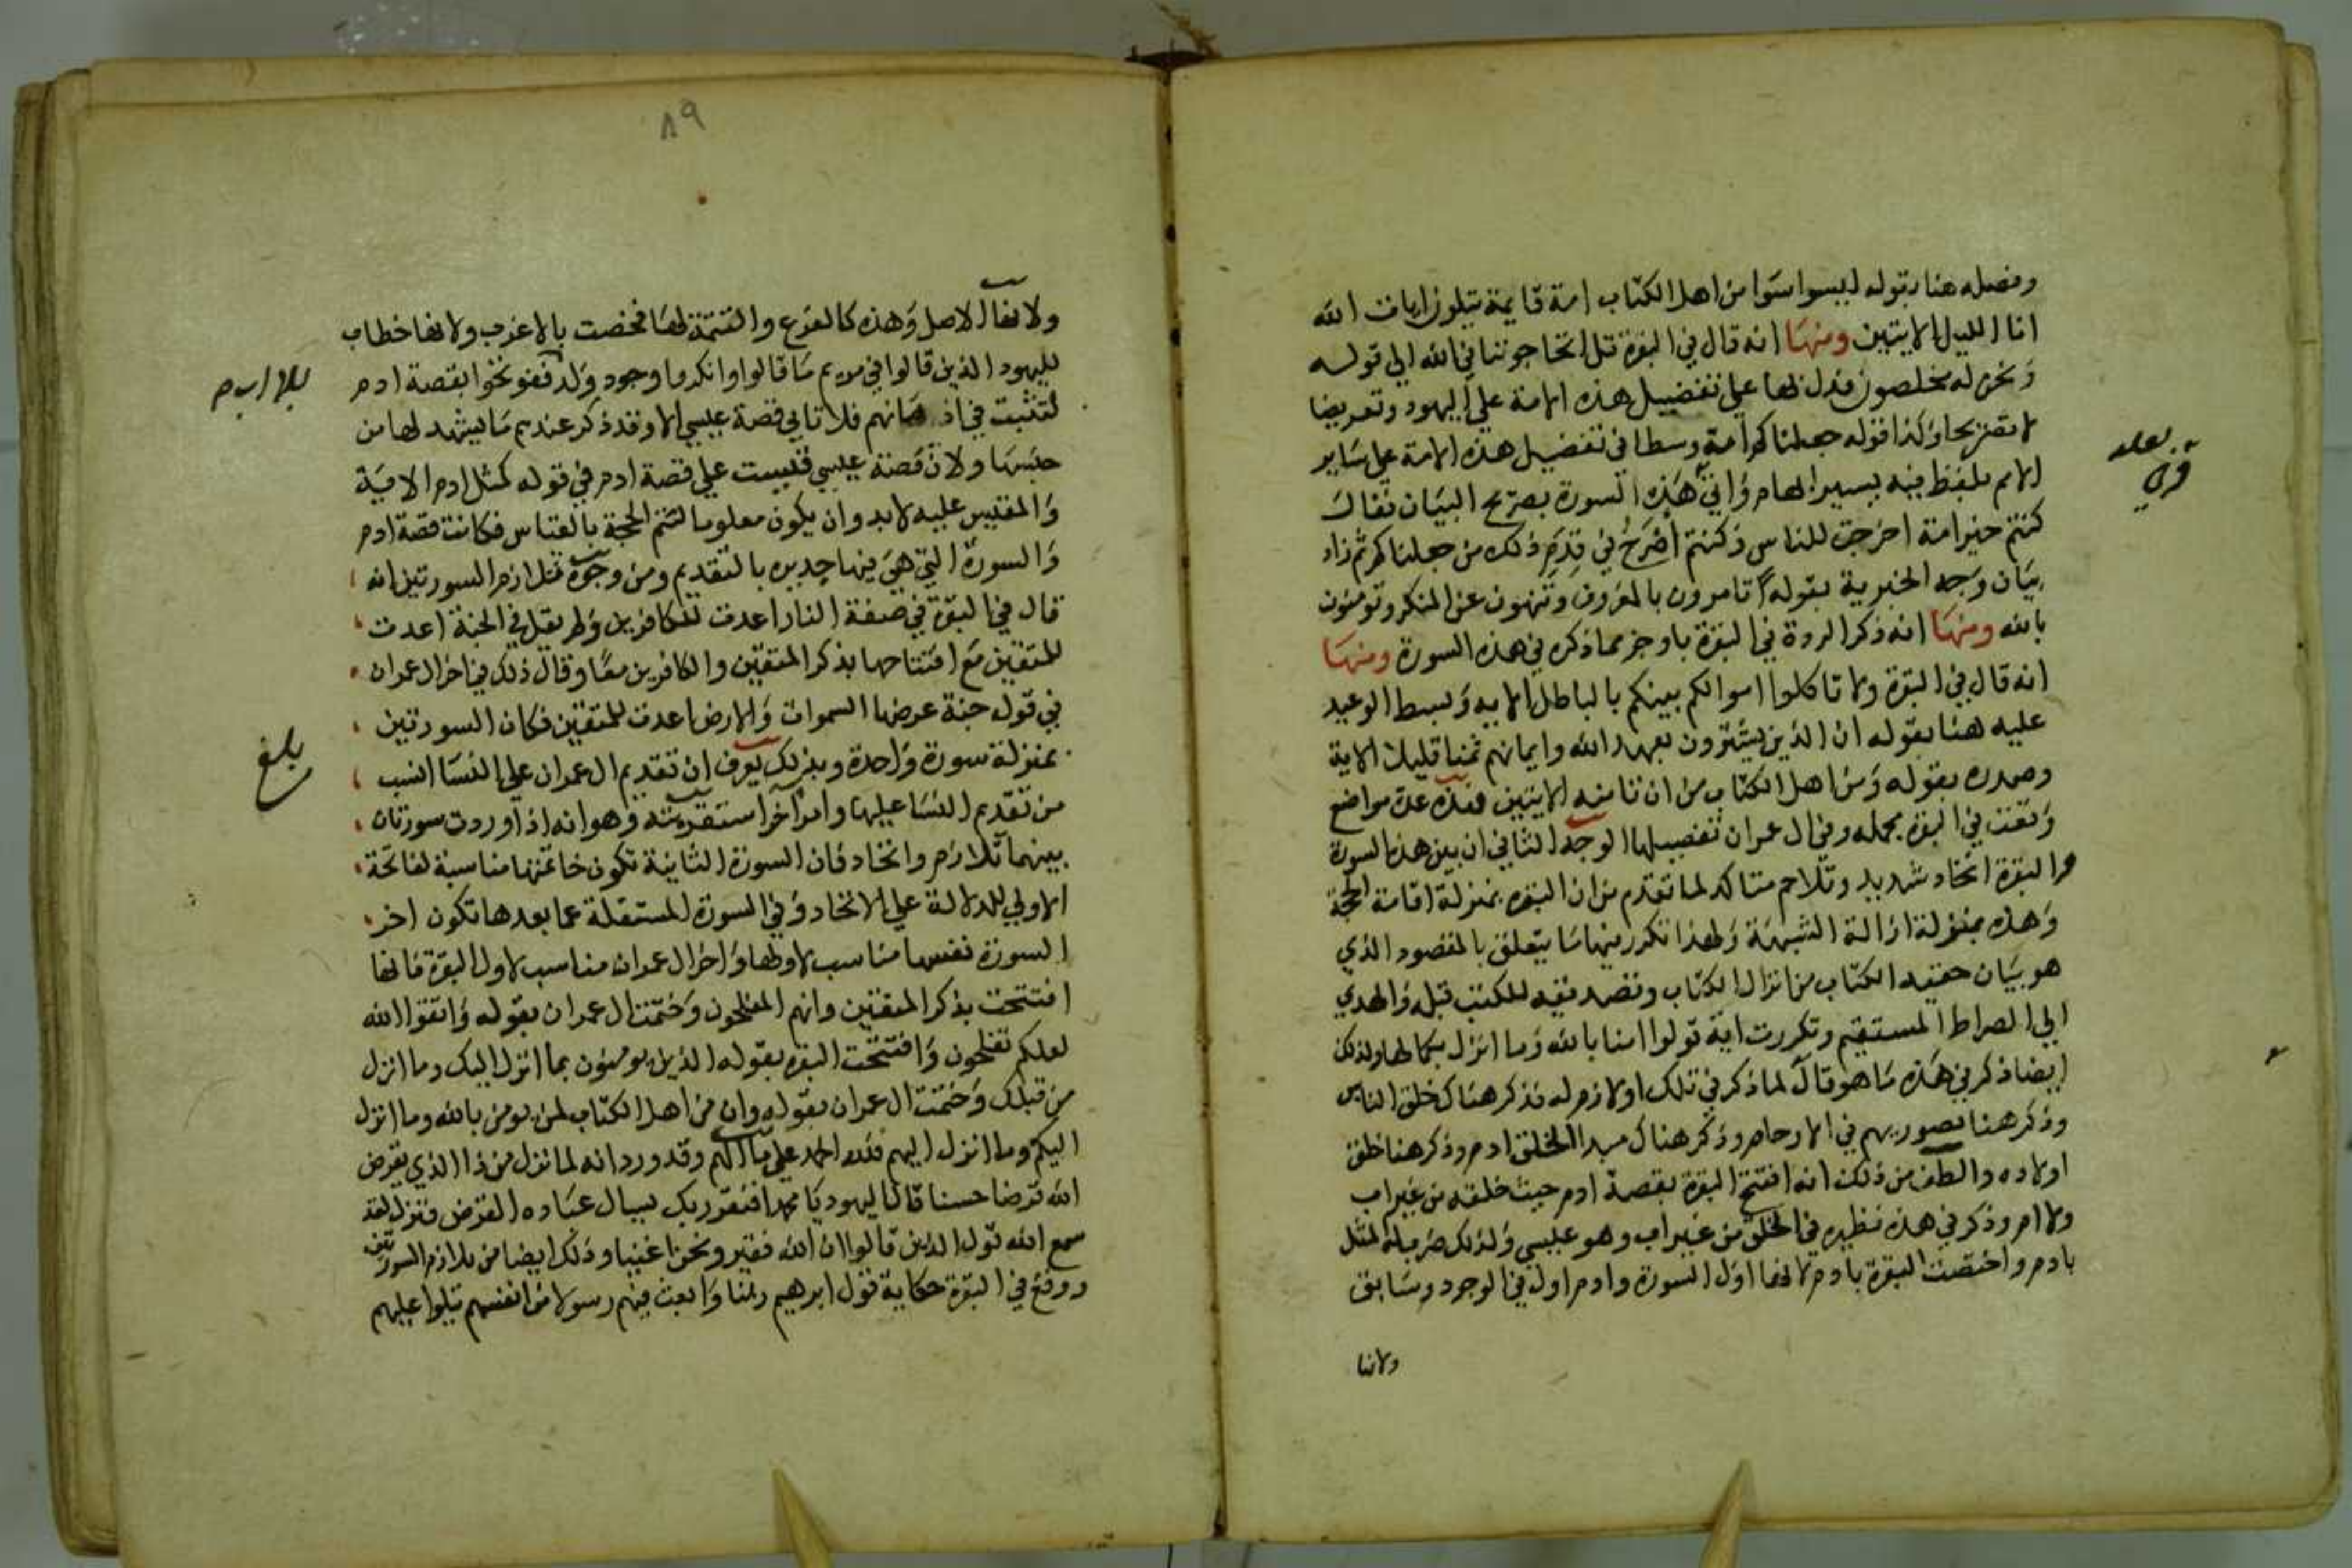 وفصله هنا بقوله ليسوا سوا من اهل الكتاب امة قايمة يتلون ايات الله
انا الليل الايتين ومنها انه قال في البقرة قل اتحاجوننا في الله الي قوله
ونحن له مخلصون فدل بها علي تفضيل هذه الامة علي اليهود وتعريضا
لا تصريحا وكذا قوله جعلناكم امة وسطا في تفضيل هذه الامة علي ساير
الامم بلفظ فيه يسير ابهام واتي في هذه السورة بصريح البيان فقال
كنتم خير امة اخرجت للناس فكنتم اصرح في قدم ذلك من جعلناكم ثم زاد
بيان وجه الخيرية بقوله تامرون بالمعروف وتنهون عن المنكر وتومنون
بالله ومنها انه ذكر الردة في البقرة باوجز مما ذكره في هذه السورة ومنها
انه قال في البقرة ولا تاكلوا اموالكم بينكم بالباطل الايه وبسط الوعيد
عليه هنا بقوله ان الذين يشترون بعهد الله وايمانهم ثمنا قليلا الاية
وصدره بقوله ومن اهل الكتاب من ان تامنه الايتين فهذه عدة مواضع
وقعت في البقره مجمله وفي ال عمران تفصيلها الوجه الثاني ان بين هذه السورة
والبقرة اتحاد شديد وتلاحم متاكد لما تقدم من ان البقره بمنزلة اقامة الحجة
وهذه بمنزلة ازالة الشبهة ولهذا تكرر فيها ما يتعلق بالمقصود الذي
هو بيان حقيه الكتاب من انزال الكتاب وتصديقه للكتب قبله والهدي
الي الصراط المستقيم وتكررت اية قولوا امنا بالله وما انزل بكمالها ولذلك
ايضا ذكر في هذه ما هو تال لما ذكر في تلك او لازم له فذكر هناك خلق الناس
وذكر هنا تصويرهم في الارحام وذكر هناك مبدا الخلق ادم وذكر هنا خلق
اولاده والطف من ذلك انه افتتح البقرة بقصة ادم حيث خلقه من غير اب
ولا ام وذكر في هذه نظيره في الخلق من غير اب وهو عيسي ولذلك ضرب له المثل
بادم واختصت البقرة بادم لانها اول السورة وادم اول في الوجود وسابق
ولانها
٨٩
ولانها الاصل وهذه كالفرع والتتمة لها فخصت بالاغرب ولانها خطاب
لليهود الذين قالوا في مريم ما قالوا وانكروا وجود ولد ففوتحوا بقصة ادم
لتثبت في اذهانهم فلا تاتي قصة عيسي الا وقد ذكر عندهم ما يشهد لها من
جنسها ولان قصة عيسي قيست علي قصة ادم في قوله كمثل ادم الاية
والمقيس عليه لابد وان يكون معلوما لتتم الحجة بالقياس فكانت قصة ادم
والسورة التي هي فيها جديره بالتقديم ومن وجوه تلازم السورتين انه
قال في البقرة في صفة النار اعدت للكافرين ولم يقل في الجنة اعدت
للمتقين مع افتتاحها بذكر المتقين والكافرين معا وقال ذلك في اخر ال عمران
في قوله جنة عرضها السموات والارض اعدت للمتقين فكان السورتين
بمنزلة سورة واحدة وبذلك يعرف ان تقديم ال عمران علي النسا انسب
من تقديم النسا عليها وامر اخر استقريته وهو انه اذا وردت سورتان
بينهما تلازم واتحاد فان السورة الثانية تكون خاتمتها مناسبة لفاتحة
الاولي للدلالة علي الاتحاد وفي السورة المستقلة عما بعدها تكون اخر
السورة نفسها مناسب لاولها واخر ال عمران مناسب لاول البقرة فانها
افتتحت بذكر المتقين وانهم المفلحون وختمت ال عمران بقوله واتقوا الله
لعلكم تفلحون وافتتحت البقره بقوله الذين يومنون بما انزل اليك وما انزل
من قبلك وختمت ال عمران بقوله وان من اهل الكتاب لمن يومن بالله وما انزل
اليكم وما انزل اليهم فلله الحمد علي ما الهم وقد ورد انه لما نزل من ذا الذي يقرض
الله قرضا حسنا قالت اليهود يا محمد افتقر ربك يسال عباده القرض فنزل لقد
سمع الله قول الذين قالوا ان الله فقير ونحن اغنيا وذلك ايضا من تلازم السورتين
ووقع في البقرة حكاية قول ابرهيم ربنا وابعث فيهم رسولا من انفسهم يتلوا عليهم
بلغ